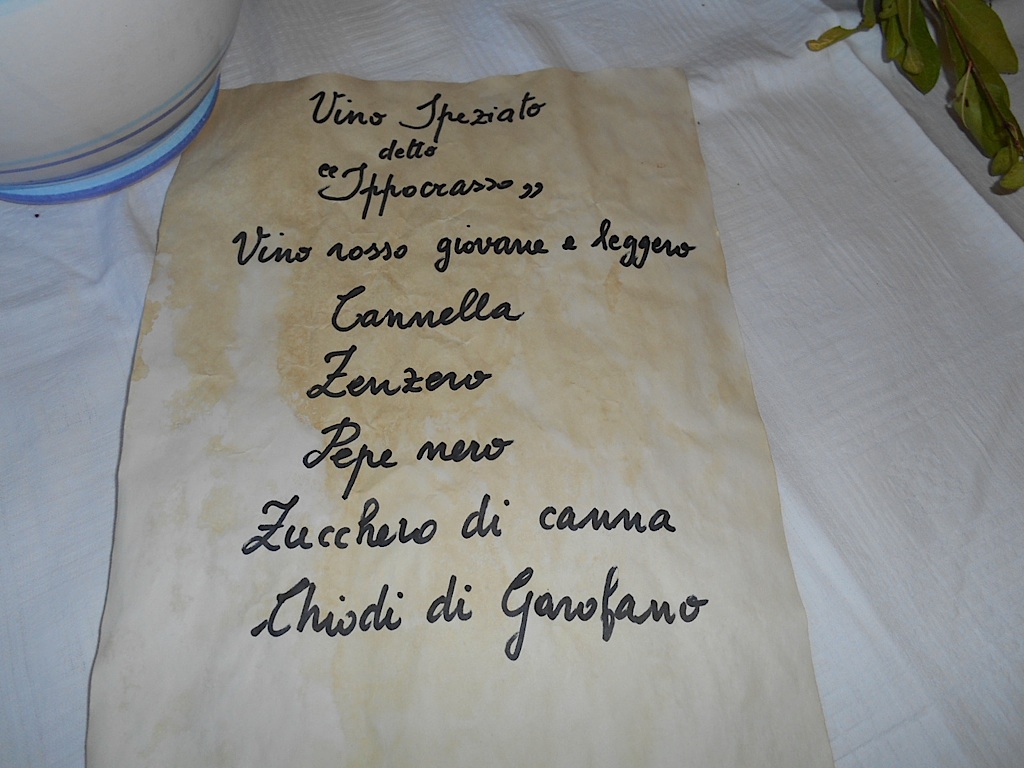 Vino Speziato
detto
“Ippocrasso”
Vino rosso giovane e leggero
Cannella
Zenzero
Pepe nero
Zucchero di canna
Chiodi di Garofano